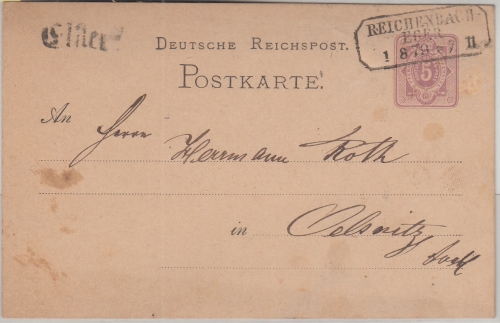 Elster
DEUTSCHE REICHSPOST.
REICHENBACH-
EGER
1 8 79 II
POSTKARTE.
5
An
Herrn Herrmann Roth
in Oelsnitz